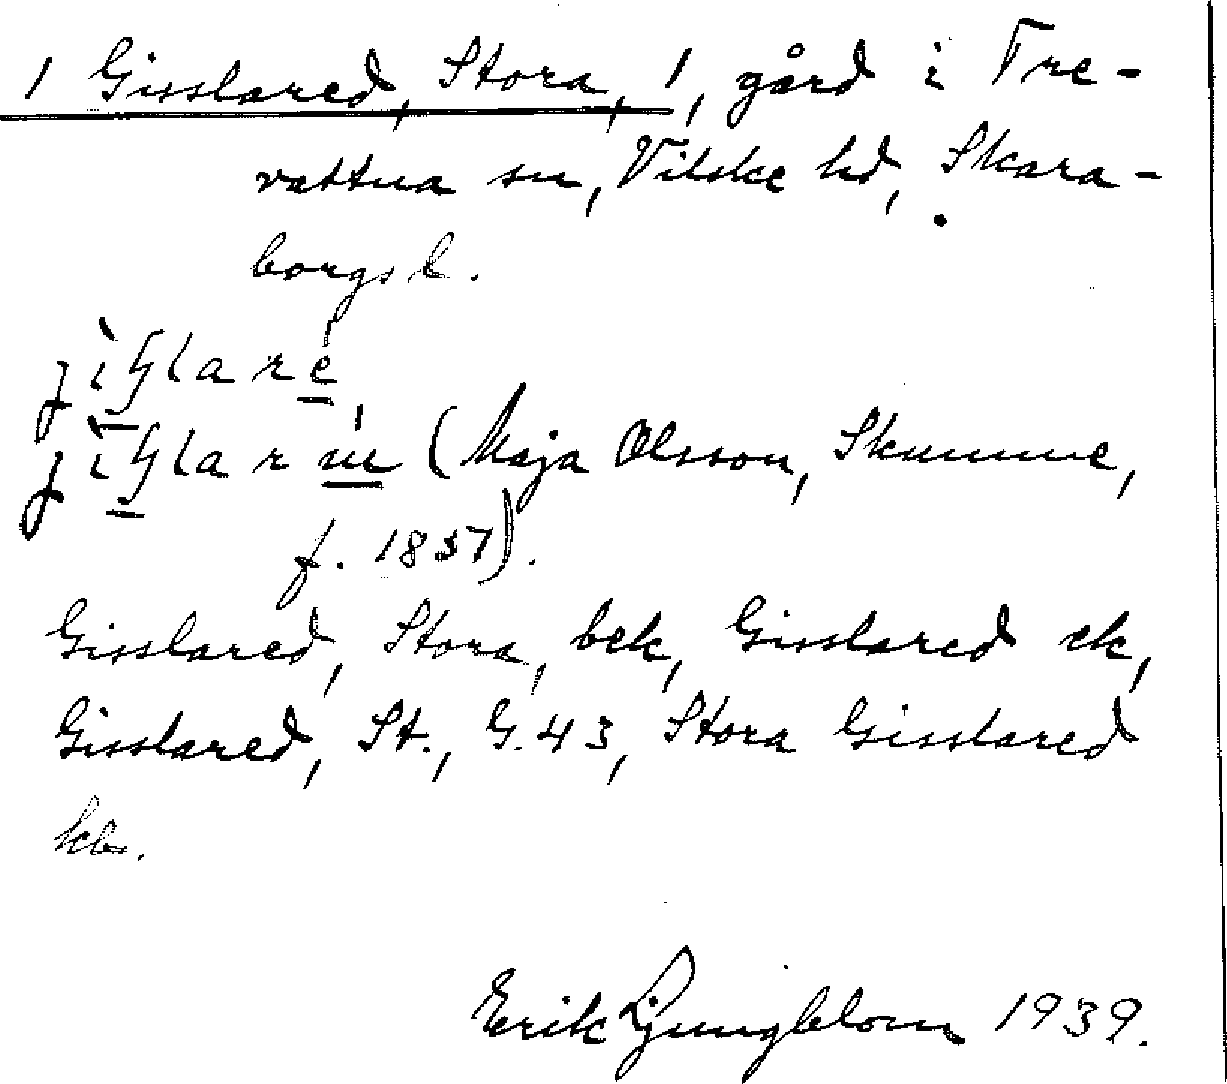 1 Gisslared, Stora, 1, gård i Tre-
vattna sn, Vilske hd, Skara-
borgs l.
(Maja Olsson, Skumme,
f. 1837).
Gisslared, Stora, bek, Gisslared ek,
Gisslared, St., G. 43, Stora Gisslared
kb.
Erik Ljungblom 1939.